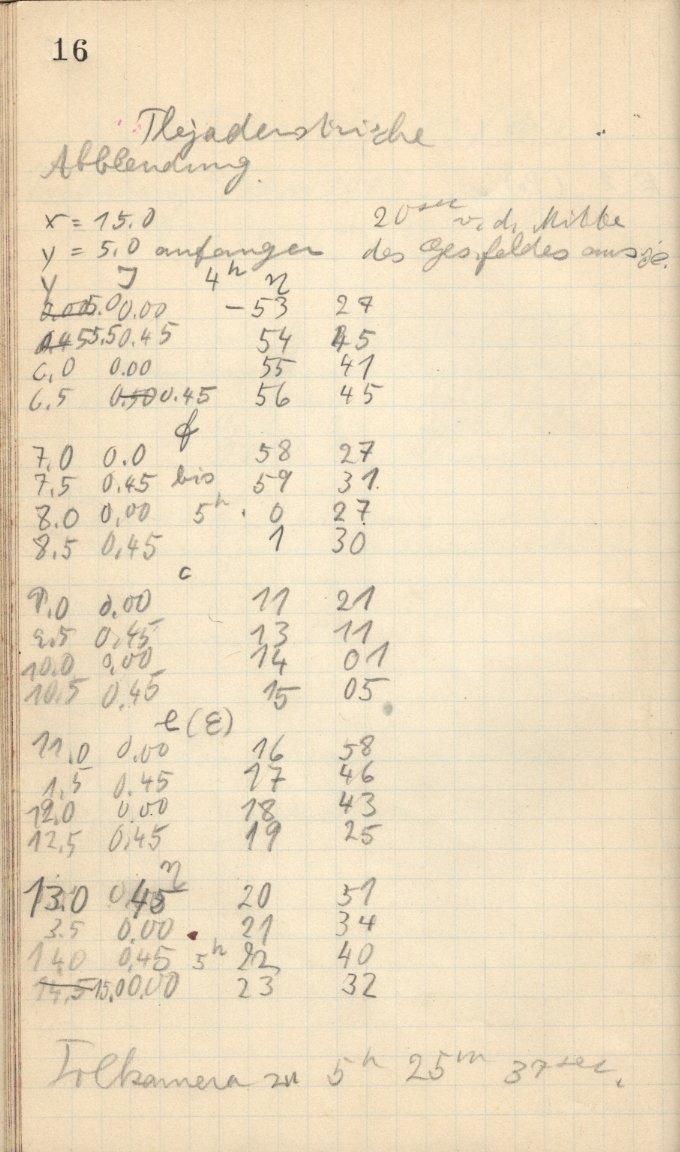 16
Plejadenstriche
Abblendung.
x = 15.0 20 sec v. d. Mitte
y = 5.0 anfangen des Ges.feldes
y J 4h η
0.00 5.0 0.00 – 53 27
0.45 5.5 0.45 54 45
6,0 0.00 55 41
6.5 0.50 0.45 56 45
f
7,0 0.0 58 27
7,5 0.45 bis 59 31
8.0 0,00 5h 0 27
8,5 0,45 1 30
c
9,0 0,00 11 21
9,5 0,45 13 11
10,0 0,00 14 01
10,5 0,45 15 05
e (E)
11,0 0,00 16 58
1,5 0.45 17 46
12,0 0,00 18 43
12,5 0,45 19 25
η
13.0 0.45 20 51
3.5 0,00 21 34
14,0 0,45 5h 22 40
14,5 15,0 0,00 23 32
5h 25m 37sec.